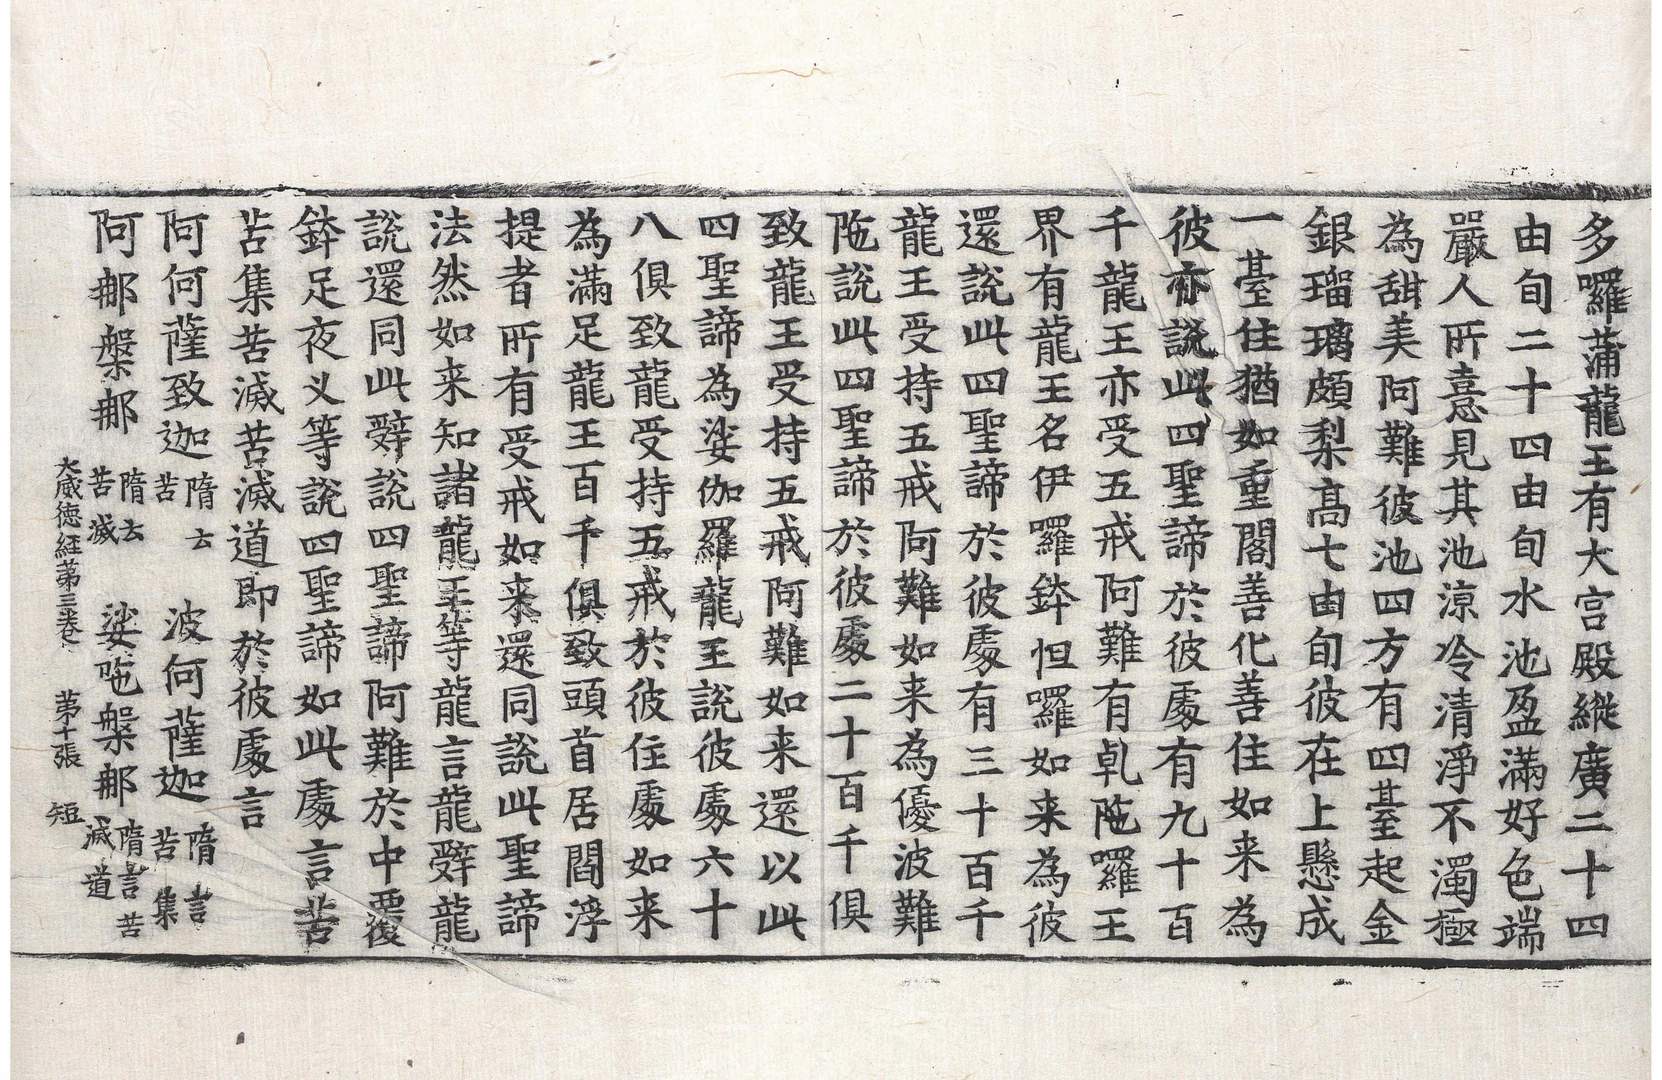 多囉蒲龍王有大宮殿縱廣二十四
由旬二十四由旬水池盈滿好色端
嚴人所憙見其池涼冷清淨不濁極
為甜美阿難彼池四方有四臺起金
銀瑠璃頗梨高七由旬彼在上懸成
一臺住猶如重閣善化善住如来為
彼亦說此四聖諦於彼處有九十百
千龍王亦受五戒阿難有乹陁囉王
界有龍王名伊囉鉢怛囉如来為彼
還說此四聖諦於彼處有三十百千
龍王受持五戒阿難如来為優波難
陁說此四聖諦於彼處二十百千俱
致龍王受持五戒阿難如来還以此
四聖諦為娑伽羅龍王說彼處六十
八俱致龍受持五戒於彼住處如来
為滿足龍王百千俱致頭首居閻浮
提者所有受戒如来還同說此聖諦
法然如来知諸龍王等龍言龍辤龍
說還同此辤說四聖諦阿難於中覆
鉢足夜义等說四聖諦如此處言苦
苦集苦滅苦滅道即於彼處言
阿何薩致迦隋云苦 波何薩迦隋言苦集
阿𨚗槃𨚗隋云苦滅 娑咃槃𨚗隋言苦滅道
大威徳経苐三卷 苐十張 短